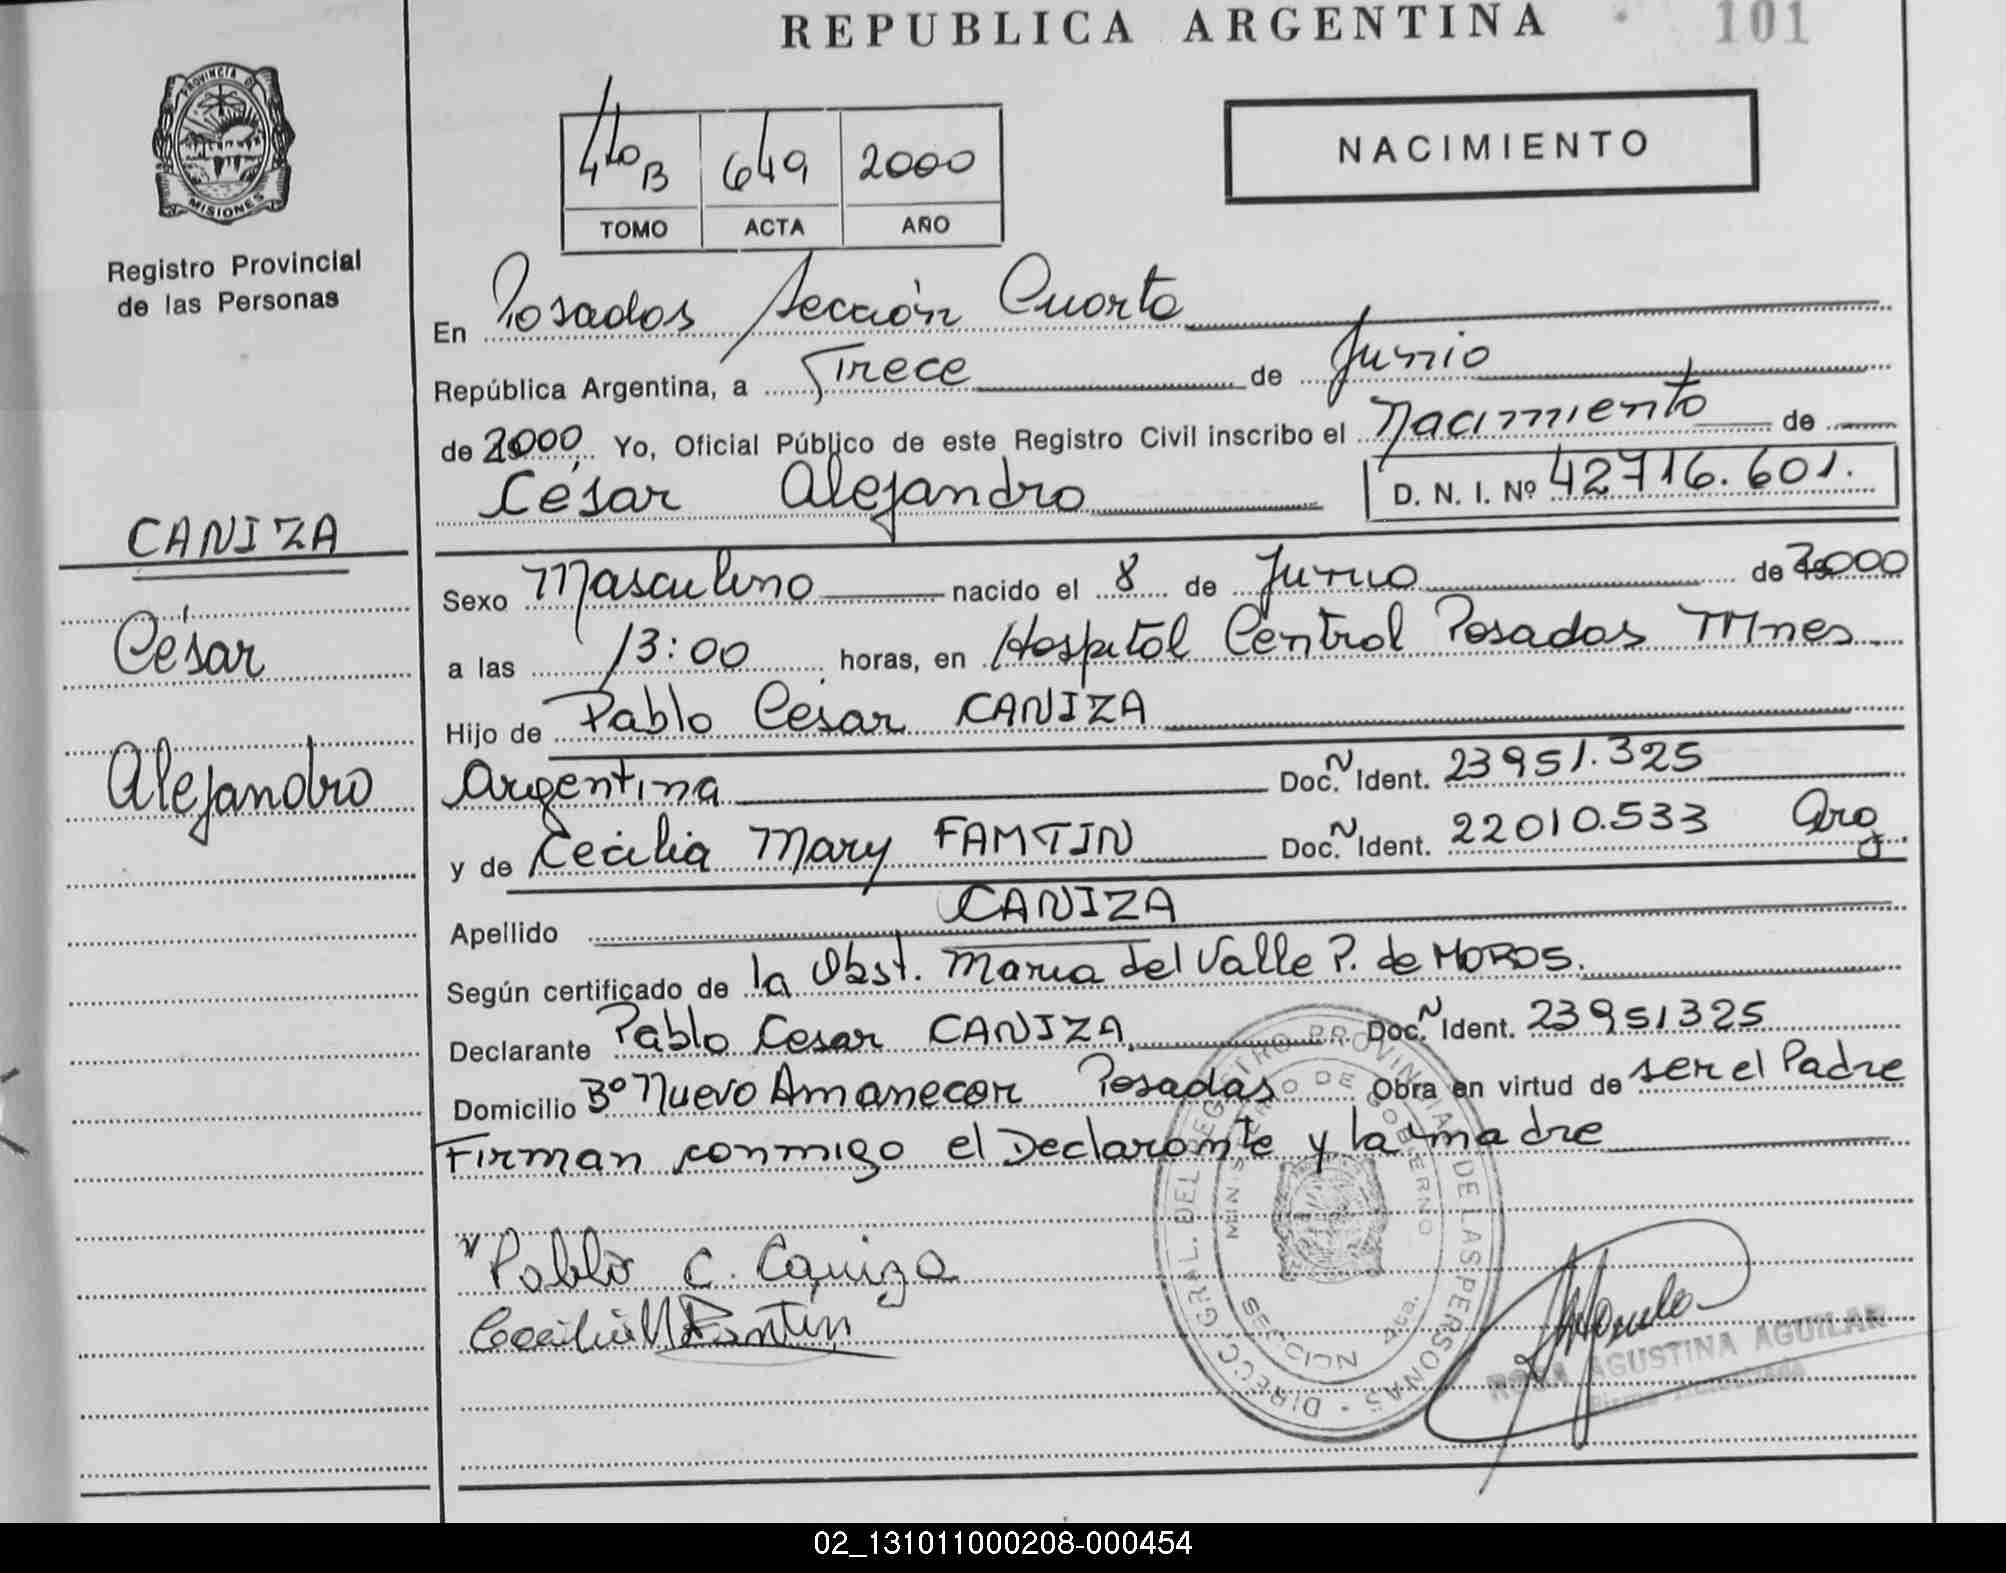 REPUBLICA ARGENTINA
101
PROVINCIA DE
MISIONES
Registro Provincial
de las Personas
440 B 649 2000
TOMO ACTA AÑO
NACIMIENTO
En Posadas Sección Cuarta
República Argentina, a Trece de Junio
de 2000, Yo, Oficial Público de este Registro Civil inscribo el Nacimiento de
César Alejandro D. N. I. Nº 42716.601.
CANIZA
César
Alejandro
Sexo Masculino nacido el 8 de Junio de 2000
a las 13:00 horas, en Hospital Central Posadas Mnes
Hijo de Pablo César CANIZA
Argentina Doc. N Ident. 23951.325
y de Cecilia Mary FAMTIN Doc. N Ident. 22010.533 Arg
Apellido CANIZA
Según certificado de la Obst. Maria del Valle P. de MOROS.
Declarante Pablo Cesar CANIZA Doc. N Ident. 23951325
Domicilio Bº Nuevo Amanecer Posadas Obra en virtud de ser el Padre
Firman conmigo el Declarante y la madre
Pablo C. Caniza
Cecilia M Fantín
DIRECC. GRAL. DEL REGISTRO PROVINCIAL DE LAS PERSONAS
MINISTERIO DE GOBIERNO
SECCION 4ta.
ROSA AGUSTINA AGUILAR
02_131011000208-000454